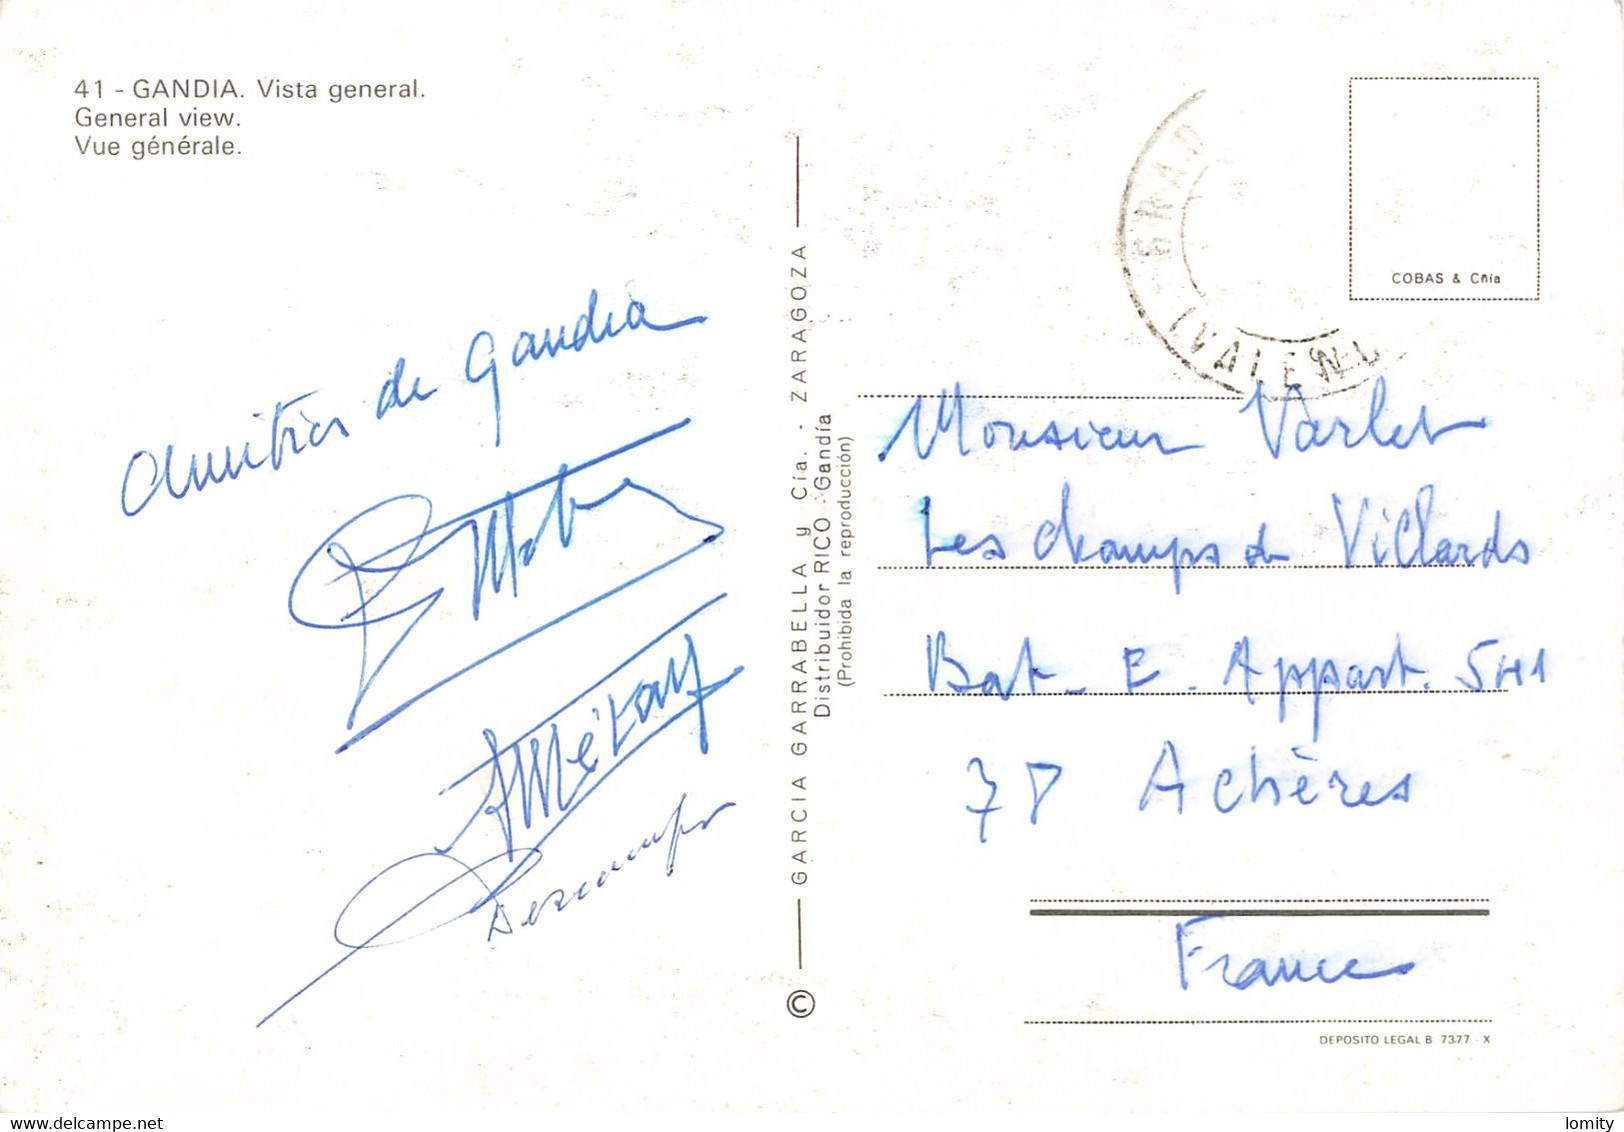 41 - GANDIA. Vista general.
General view.
Vue générale.
Amitiés de Gandia
AMétay
Descamps
GARCIA GARRABELLA y Cía. - ZARAGOZA
Distribuidor RICO - Gandía
(Prohibida la reproducción)
©
GRAO
(VALEN
COBAS & Cñía
Monsieur Varlet
Les champs de Villards
Bat - E. Appart. 541
78 Achères
France
DEPOSITO LEGAL B 7377 - X
www.delcampe.net
lomity